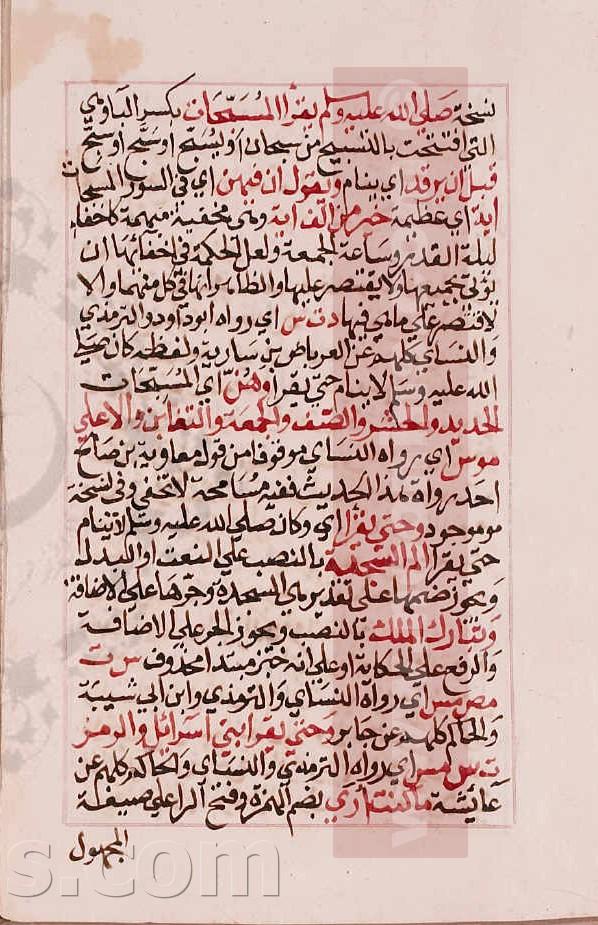 نسخة صلى الله عليه وسلم يقرأ المسبحات بكسر الباء وهي
التي افتتحت بالتسبيح من سبحان او يسبح او سبح او سبح
قبل ان يرقد اي ينام ويقول ان فيهن اي في السور المسبحات
اية اي عظيمة خير من الف اية وهي مخفية مبهمة كاخفاء
ليلة القدر وساعة الجمعة ولعل الحكمة في اخفائها ان
يؤتى بجميعها ولا يقتصر عليها والظاهر انها في كل منهما والا
لاقتصر على ما هي فيها دت س اي رواه ابو داود والترمذي
والنساي كلهم عن العرباض بن سارية ولفظه كان صلى
الله عليه وسلم لا ينام حتى يقرا وهن اي المسبحات
الحديد والحشر والصف والجمعة والتغابن والاعلى
مو س اي رواه النساي موقوفا من قول معاوية بن صالح
احد رواة هذا الحديث ففيه مسامحة لا تخفى وفي نسخة
مو موجود وحتى يقرأ اي وكان صلى الله عليه وسلم لا ينام
حتى يقرا الم السجدة بالنصب على النعت او البدل
ويجوز ضمها على تقدير هي السجدة وجرها على الاضافة
وتبارك الملك بالنصب ويجوز الجر على الاضافة
والرفع على الحكاية او على انه خبر مبتدا محذوف س ت
مص مس اي رواه النساي والترمذي وابن ابي شيبة
والحاكم كلهم عن جابر وحتى يقرا بني اسرائل والزمر
ت س مس اي رواه الترمذي والنساي والحاكم كلهم عن
عايشة ما كنت أرى بضم الهمزة وفتح الرا على صيغة
المجهول
s.com